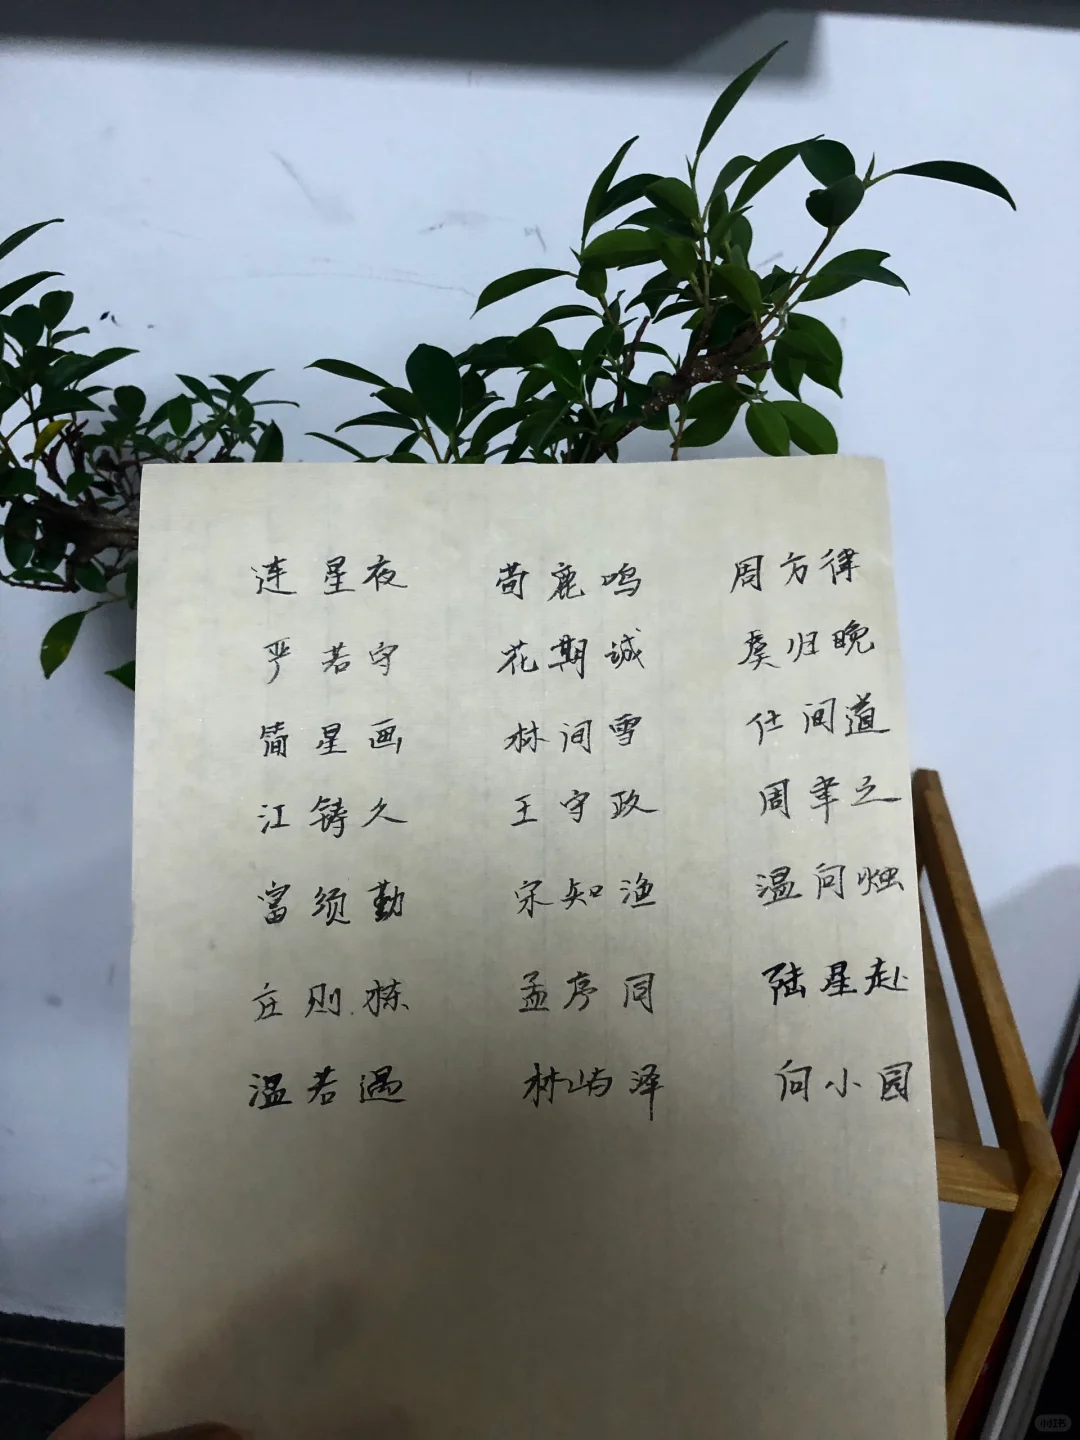 连星夜 荀鹿鸣 周方律
严若守 花期诚 虞归晚
简星画 林间雪 仕间道
江铸久 王守政 周聿之
富须勤 宋知渔 温问烛
庄则栋 孟序同 陆星赴
温若遇 林屿泽 向小园
小红书